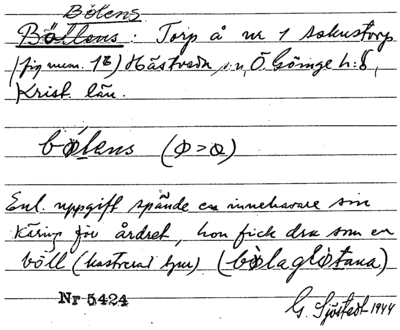 Bölens
Böllens: Torp å nr 1 Askustorp
(fig num. 1B) Hästveda sn, Ö. Göinge h:d,
Krist. län.
bølens (ø>o)
Enl. uppgift spände en innehavare sin
käring för årdret, hon fick dra som en
böll (kastrerad tjur) (
Nr 5424
G. Sjöstedt 1944